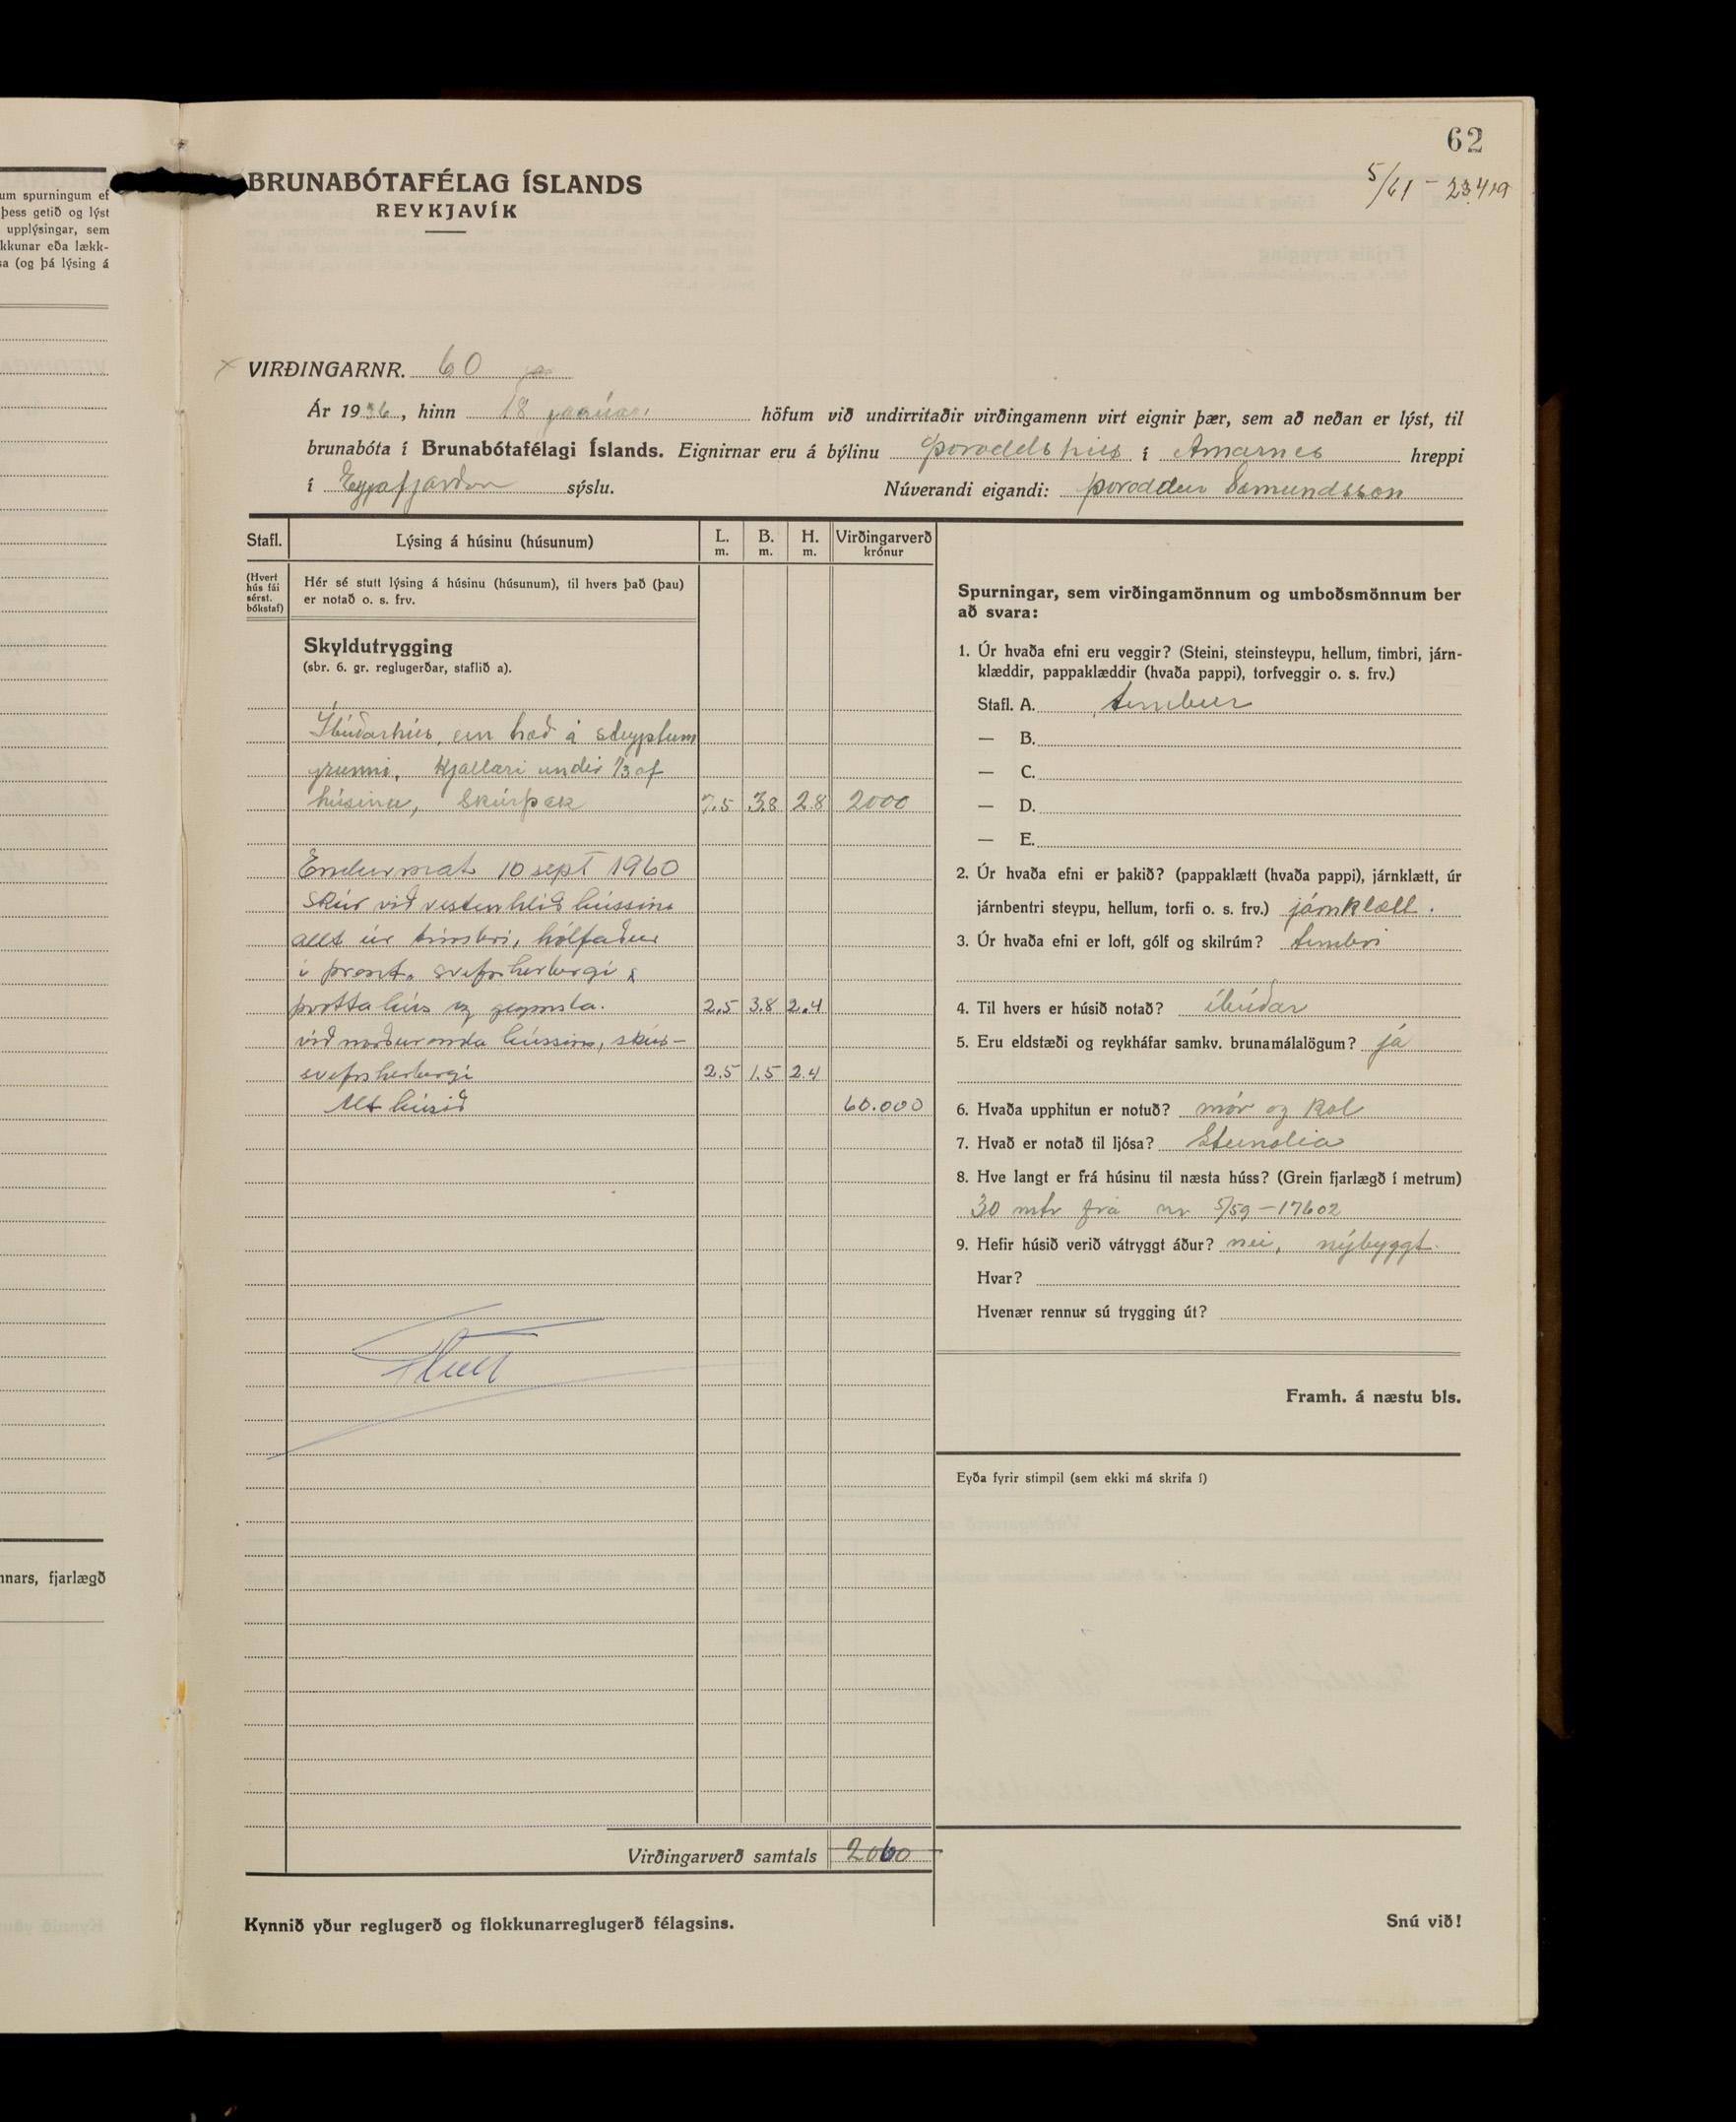 62
5/61 - 23419
um spurningum ef
þess getið og lýst
upplýsingar, sem
kkunar eða lækk-
sa (og þá lýsing á
nnars, fjarlægð
BRUNABÓTAFÉLAG ÍSLANDS
REYKJAVÍK
VIRÐINGARNR. 60
Ár 1936, hinn 18 janúar höfum við undirritaðir virðingamenn virt eignir þær, sem að neðan er lýst, til
brunabóta í Brunabótafélagi Íslands. Eignirnar eru á býlinu Þoroddshús í Arnarnes hreppi
í Eyjafjarðar sýslu. Núverandi eigandi: Þoroddur Sæmundsson
Stafl. Lýsing á húsinu (húsunum) L. m. B. m. H. m. Virðingarverð krónur
(Hvert hús fái sérst. bókstaf)
Hér sé stutt lýsing á húsinu (húsunum), til hvers það (þau)
er notað o. s. frv.
Skyldutrygging
(sbr. 6. gr. reglugerðar, staflið a).
Íbúðarhús, ein hæð á steyptum
grunni, Kjallari undir 1/3 af
húsinu, Skúrþak 7.5 3.8 2.8 2000
Endurmat 10 sept 1960
Skúr við vesturhlið hússins
allt úr timbri, hólfaður
í svefnherbergi
þvottahús og geymsla. 2.5 3.8 2.4
við norðurenda hússins, skúr-
svefnherbergi 2.5 1.5 2.4
Alt húsið 60.000
Virðingarverð samtals 2000
Kynnið yður reglugerð og flokkunarreglugerð félagsins.
Spurningar, sem virðingamönnum og umboðsmönnum ber
að svara:
1. Úr hvaða efni eru veggir? (Steini, steinsteypu, hellum, timbri, járn-
klæddir, pappaklæddir (hvaða pappi), torfveggir o. s. frv.)
Stafl. A. timbur
— B.
— C.
— D.
— E.
2. Úr hvaða efni er þakið? (pappaklætt (hvaða pappi), járnklætt, úr
járnbentri steypu, hellum, torfi o. s. frv.) járnklætt.
3. Úr hvaða efni er loft, gólf og skilrúm? timbri
4. Til hvers er húsið notað? íbúðar
5. Eru eldstæði og reykháfar samkv. brunamálalögum? já
6. Hvaða upphitun er notuð? mór og kol
7. Hvað er notað til ljósa? Steinolia
8. Hve langt er frá húsinu til næsta húss? (Grein fjarlægð í metrum)
30 mtr frá nr 5/59 - 17602
9. Hefir húsið verið vátryggt áður? nei, nýbyggt.
Hvar?
Hvenær rennur sú trygging út?
Framh. á næstu bls.
Eyða fyrir stimpil (sem ekki má skrifa í)
Snú við!